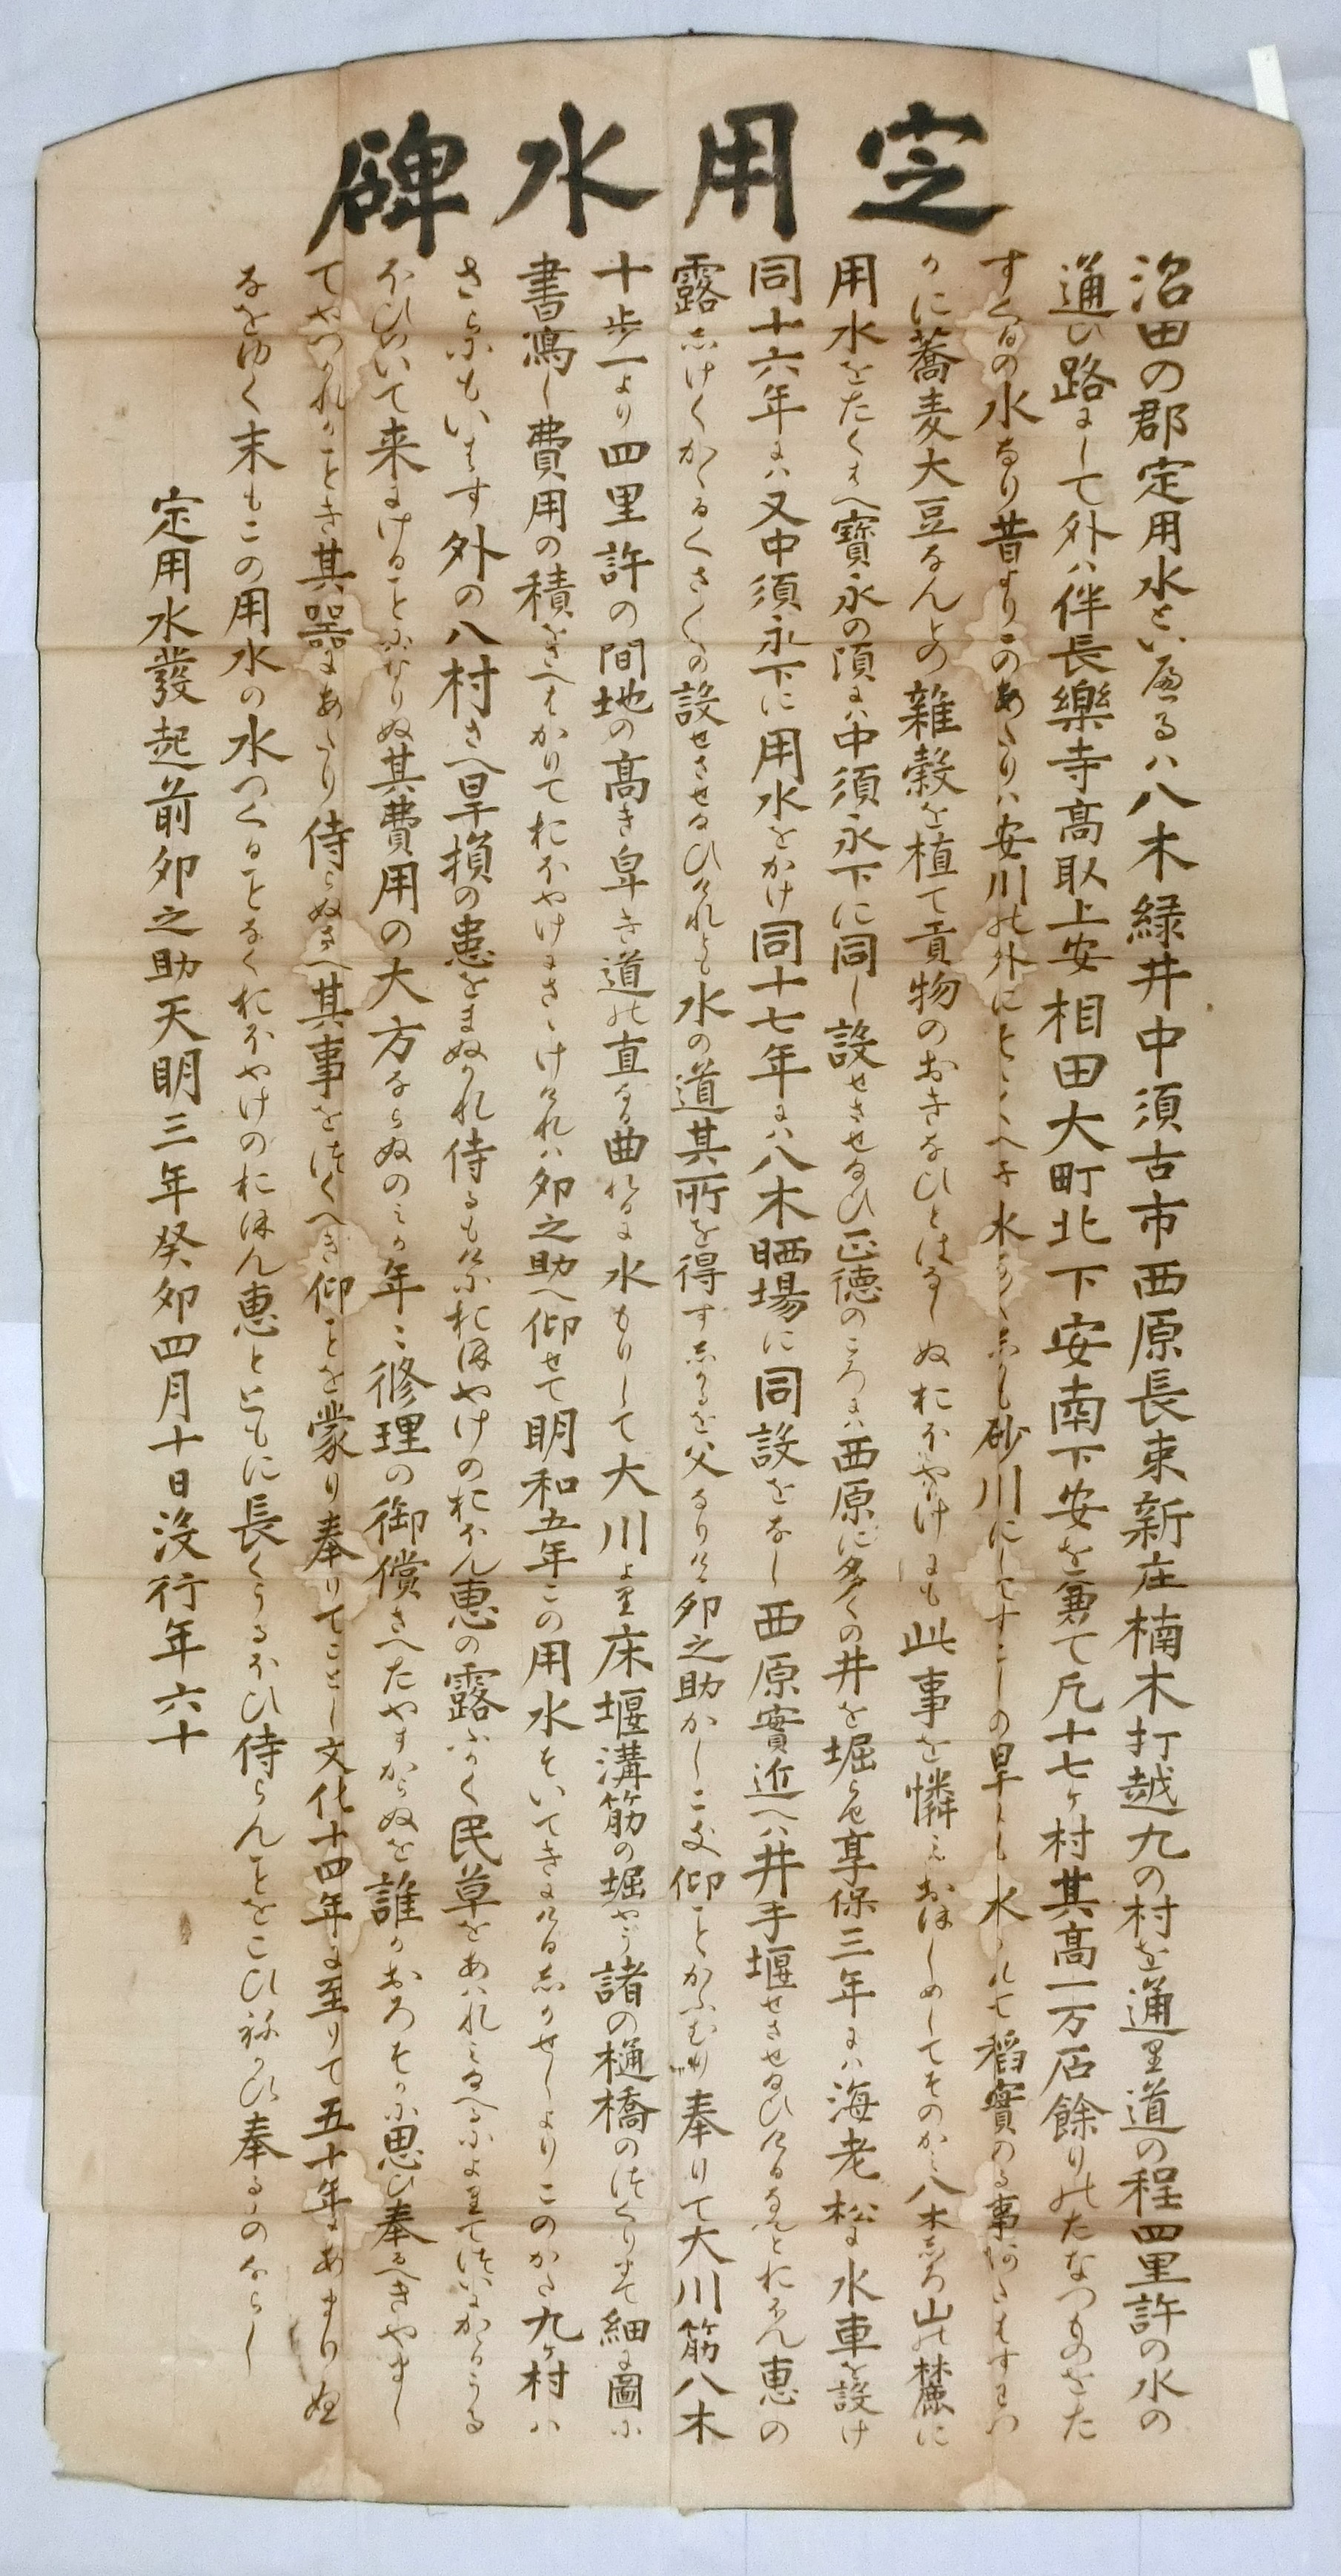 定用水碑
沼田の郡定用水といへるハ八木緑井中須古市西原長束新庄楠木打越九の村を通里道の程四里許の水の
通ひ路にして外ハ伴長樂寺高取上安相田大町北下安南下安を兼て凡十七ヶ村其高一万石餘りのたなつものをた
すくるの水なり昔よりこのあたりハ安川の外に水なくしかも砂川にしてすこしの旱にも水かれて稻實のる事
かに蕎麦大豆なんとの雜穀を植て貢物のおきなひとはなしぬおほやけにも此事を憐ミおほしめしてそのかミ八木しろ山の麓に
用水をたくはへ寶永の頃にハ中須永下に同し設せさせ給ひ正徳のころにハ西原に多くの井を堀らせ享保三年にハ海老松に水車を設け
同十六年にハ又中須永下に用水をかけ同十七年にハ八木晒場に同設をなし西原實近へハ井手堰せさせ給ひける なとおほん惠の
露しけくかゝるくさくさの設せさせ給ひけれとも水の道其所を得すしかるを父なりける卯之助かしこき仰ことかふむり奉りて大川筋八木
十歩一より四里許の間地の高き卑き道の直なる曲れるに水もりして大川より床堰溝筋の堀やう諸の樋橋のつくり まて細に圖に
書寫し費用の積をさへはかりておほやけにさゝけけれハ卯之助へ仰せて明和五年この用水をいてきにけるしかせしよりこのかた九ヶ村ハ
さらにもいはす外の八村さへ旱損の患をまぬかれ侍るも けにおほやけのおほん惠の露ふかく民草をあハれミ給へるによりてつひにかゝるうる
ほひのいて来にけることになりぬ其費用の大方ならぬのミか年ミ修理の御償さへたやすからぬを誰かおろそかに思ひ奉るへきやまし
てやつかれかことき其器にあたり侍らぬさへ其事をつくへき仰ことを蒙り奉りてことし文化十四年に至りて五十年にあまりぬ
なをゆく末もこの用水の水つくることなくおほやけのおほん惠とともに長くうるほひ侍らんことをこひねかひ奉るものならし
定用水發起前卯之助天明三年癸卯四月十日没行年六十